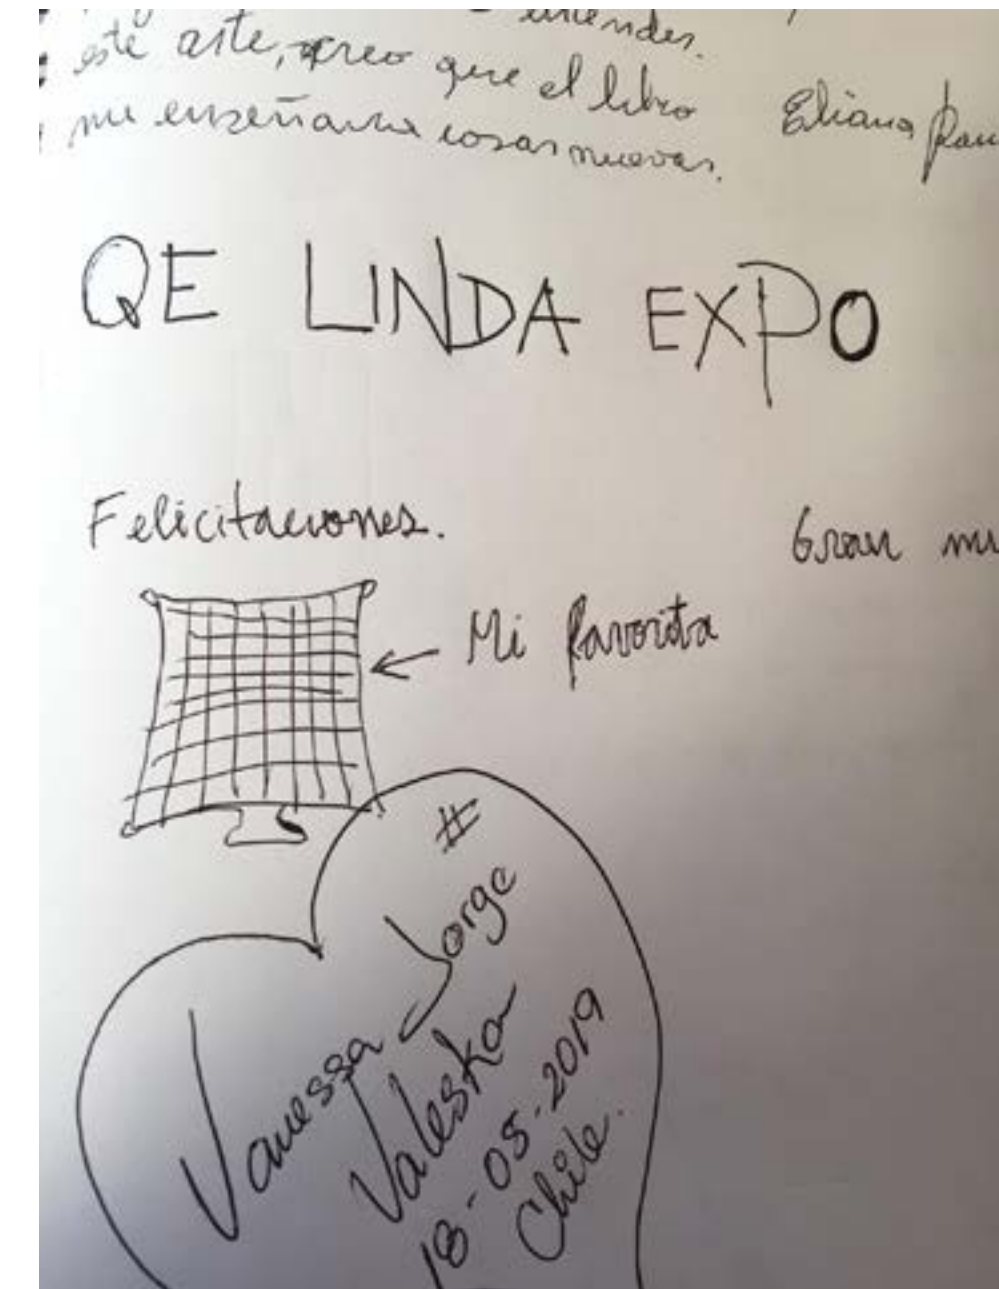 este arte, creo que el libro
me enseñara cosas nuevas.
Eliana
QE LINDA EXPO
Felicitaciones.
Gran
Mi favorita
#
Vanessa Jorge
Valeska
18-05-2019
Chile.